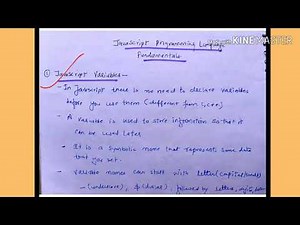 KINEMASTER
Javascript Programming Language
Fundamentals
① Javascript Variables -
- In javascript there is no need to declare variables
before you use them (different from
- A variable is used to store information so that it
can be used later
- It is a symbolic name that represents some data
that you set.
- Variable names can start with letter (capital/small)
- (underscore), $ (dollar), followed by letters,